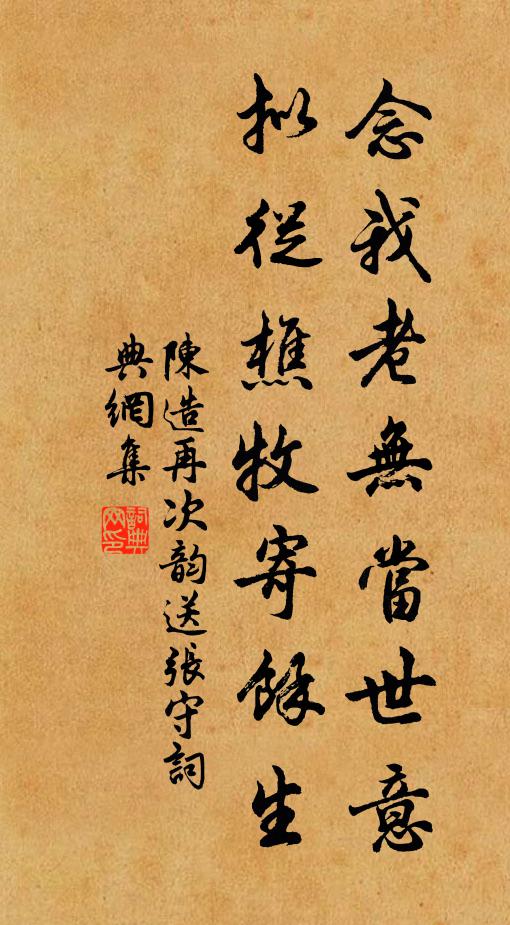 念我老無當世意
拟從樵牧寄餘生
陳造再次韵送張守詞
典網集
詞典网印